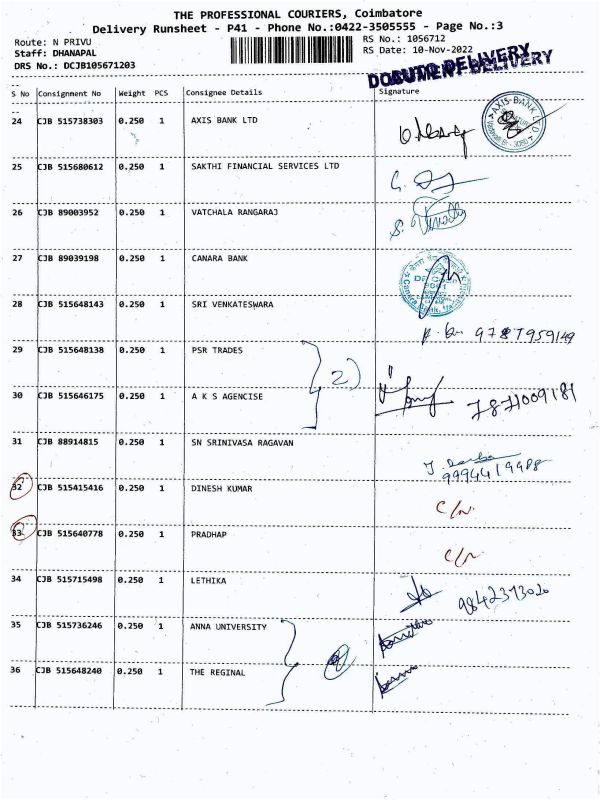 THE PROFESSIONAL COURIERS, Coimbatore
Delivery Runsheet - P41 - Phone No.:0422-3505555 - Page No.:3
Route: N PRIVU
Staff: DHANAPAL
DRS No.: DCJB105671203
RS No.: 1056712
RS Date: 10-Nov-2022
DOCUMENT DELIVERY
S No Consignment No Weight PCS Consignee Details Signature
24 CJB 515738303 0.250 1 AXIS BANK LTD
AXIS BANK LTD
25 CJB 515680612 0.250 1 SAKTHI FINANCIAL SERVICES LTD
26 CJB 89003952 0.250 1 VATCHALA RANGARAJ
27 CJB 89039198 0.250 1 CANARA BANK
28 CJB 515648143 0.250 1 SRI VENKATESWARA
9787959149
29 CJB 515648138 0.250 1 PSR TRADES
2)
30 CJB 515646175 0.250 1 A K S AGENCISE
7871009181
31 CJB 88914815 0.250 1 SN SRINIVASA RAGAVAN
9994419988
32 CJB 515415416 0.250 1 DINESH KUMAR
C/N.
33 CJB 515640778 0.250 1 PRADHAP
C/N
34 CJB 515715498 0.250 1 LETHIKA
9842373020
35 CJB 515736246 0.250 1 ANNA UNIVERSITY
36 CJB 515648240 0.250 1 THE REGINAL